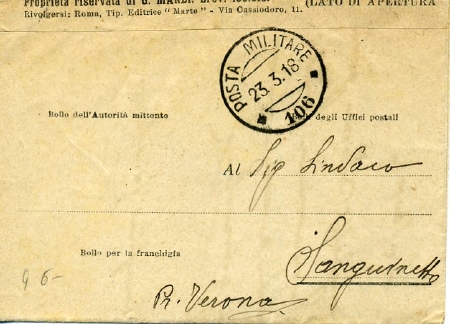 Proprietà riservata di G. MARDI. Brev.
(LATO DI APERTURA
Rivolgersi: Roma, Tip. Editrice "Marte" - Via Cassiodoro, 11.
POSTA MILITARE
23.3.18
106
Bollo dell'Autorità mittente
degli Uffici postali
Al Sig Sindaco
Bollo per la franchigia
Sanguinetto
9 6-
Pr. Verona